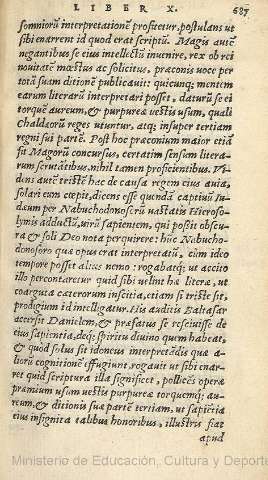 LIBER X. 687
somniorũ interpretationẽ profitetur, postulans ut
sibi enarrent id quod erat scriptũ. Magis autẽ
negantibus se eius intellectũ invenire, rex ob rei
nouitatẽ mœstus ac solicitus, præconis uoce per
totã suam ditionẽ publicauit: quicunq; mentem
earum literarũ interpretari posset, daturũ se ei
torquẽ aureum, & purpureã uestis usum, quali
Chaldæorũ reges utuntur, atq; insuper tertiam
regni sui partẽ. Post hoc præconium maior etiã
fit Magorũ concursus, certatim sensum litera-
rum scrutãtibus, nihil tamen proficientibus. Vi-
dens autẽ tristẽ hac de causa regem eius auia,
solari eum cœpit, dicens esse quendã captiuũ Iu-
dæum per Nabuchodonoserũ uastatis Hieroso-
lymis adductũ, uirũ sapientem, qui possit obscu-
ra & soli Deo nota perquirere: hũc Nabucho-
donosoro quæ opus erat interpretatũ, cùm ideo
tempore posset alius nemo: rogabatq; ut accito
illo percontaretur quid sibi uelint hæ literæ, ut
coarguta cæterorum inscitia, etiam si triste sit,
prodigium id intelligatur. His auditis Baltasar
accersit Danielem, & præfatus se resciuisse de
eius sapientia, deq; spiritu diuino quem habeat,
& quòd solus sit idoneus interpretãdis quæ a-
liorũ cognitionẽ effugiunt, rogauit ut sibi enar-
ret quid scriptura illa significet, pollicẽs operæ
præmium usum uestis purpureæ torquemq; au-
reum, & ditionis suæ partẽ tertiam, ut sapiẽtia
eius insignita talibus honoribus, illustris fiat
apud
Ministerio de Educación, Cultura y Deporte